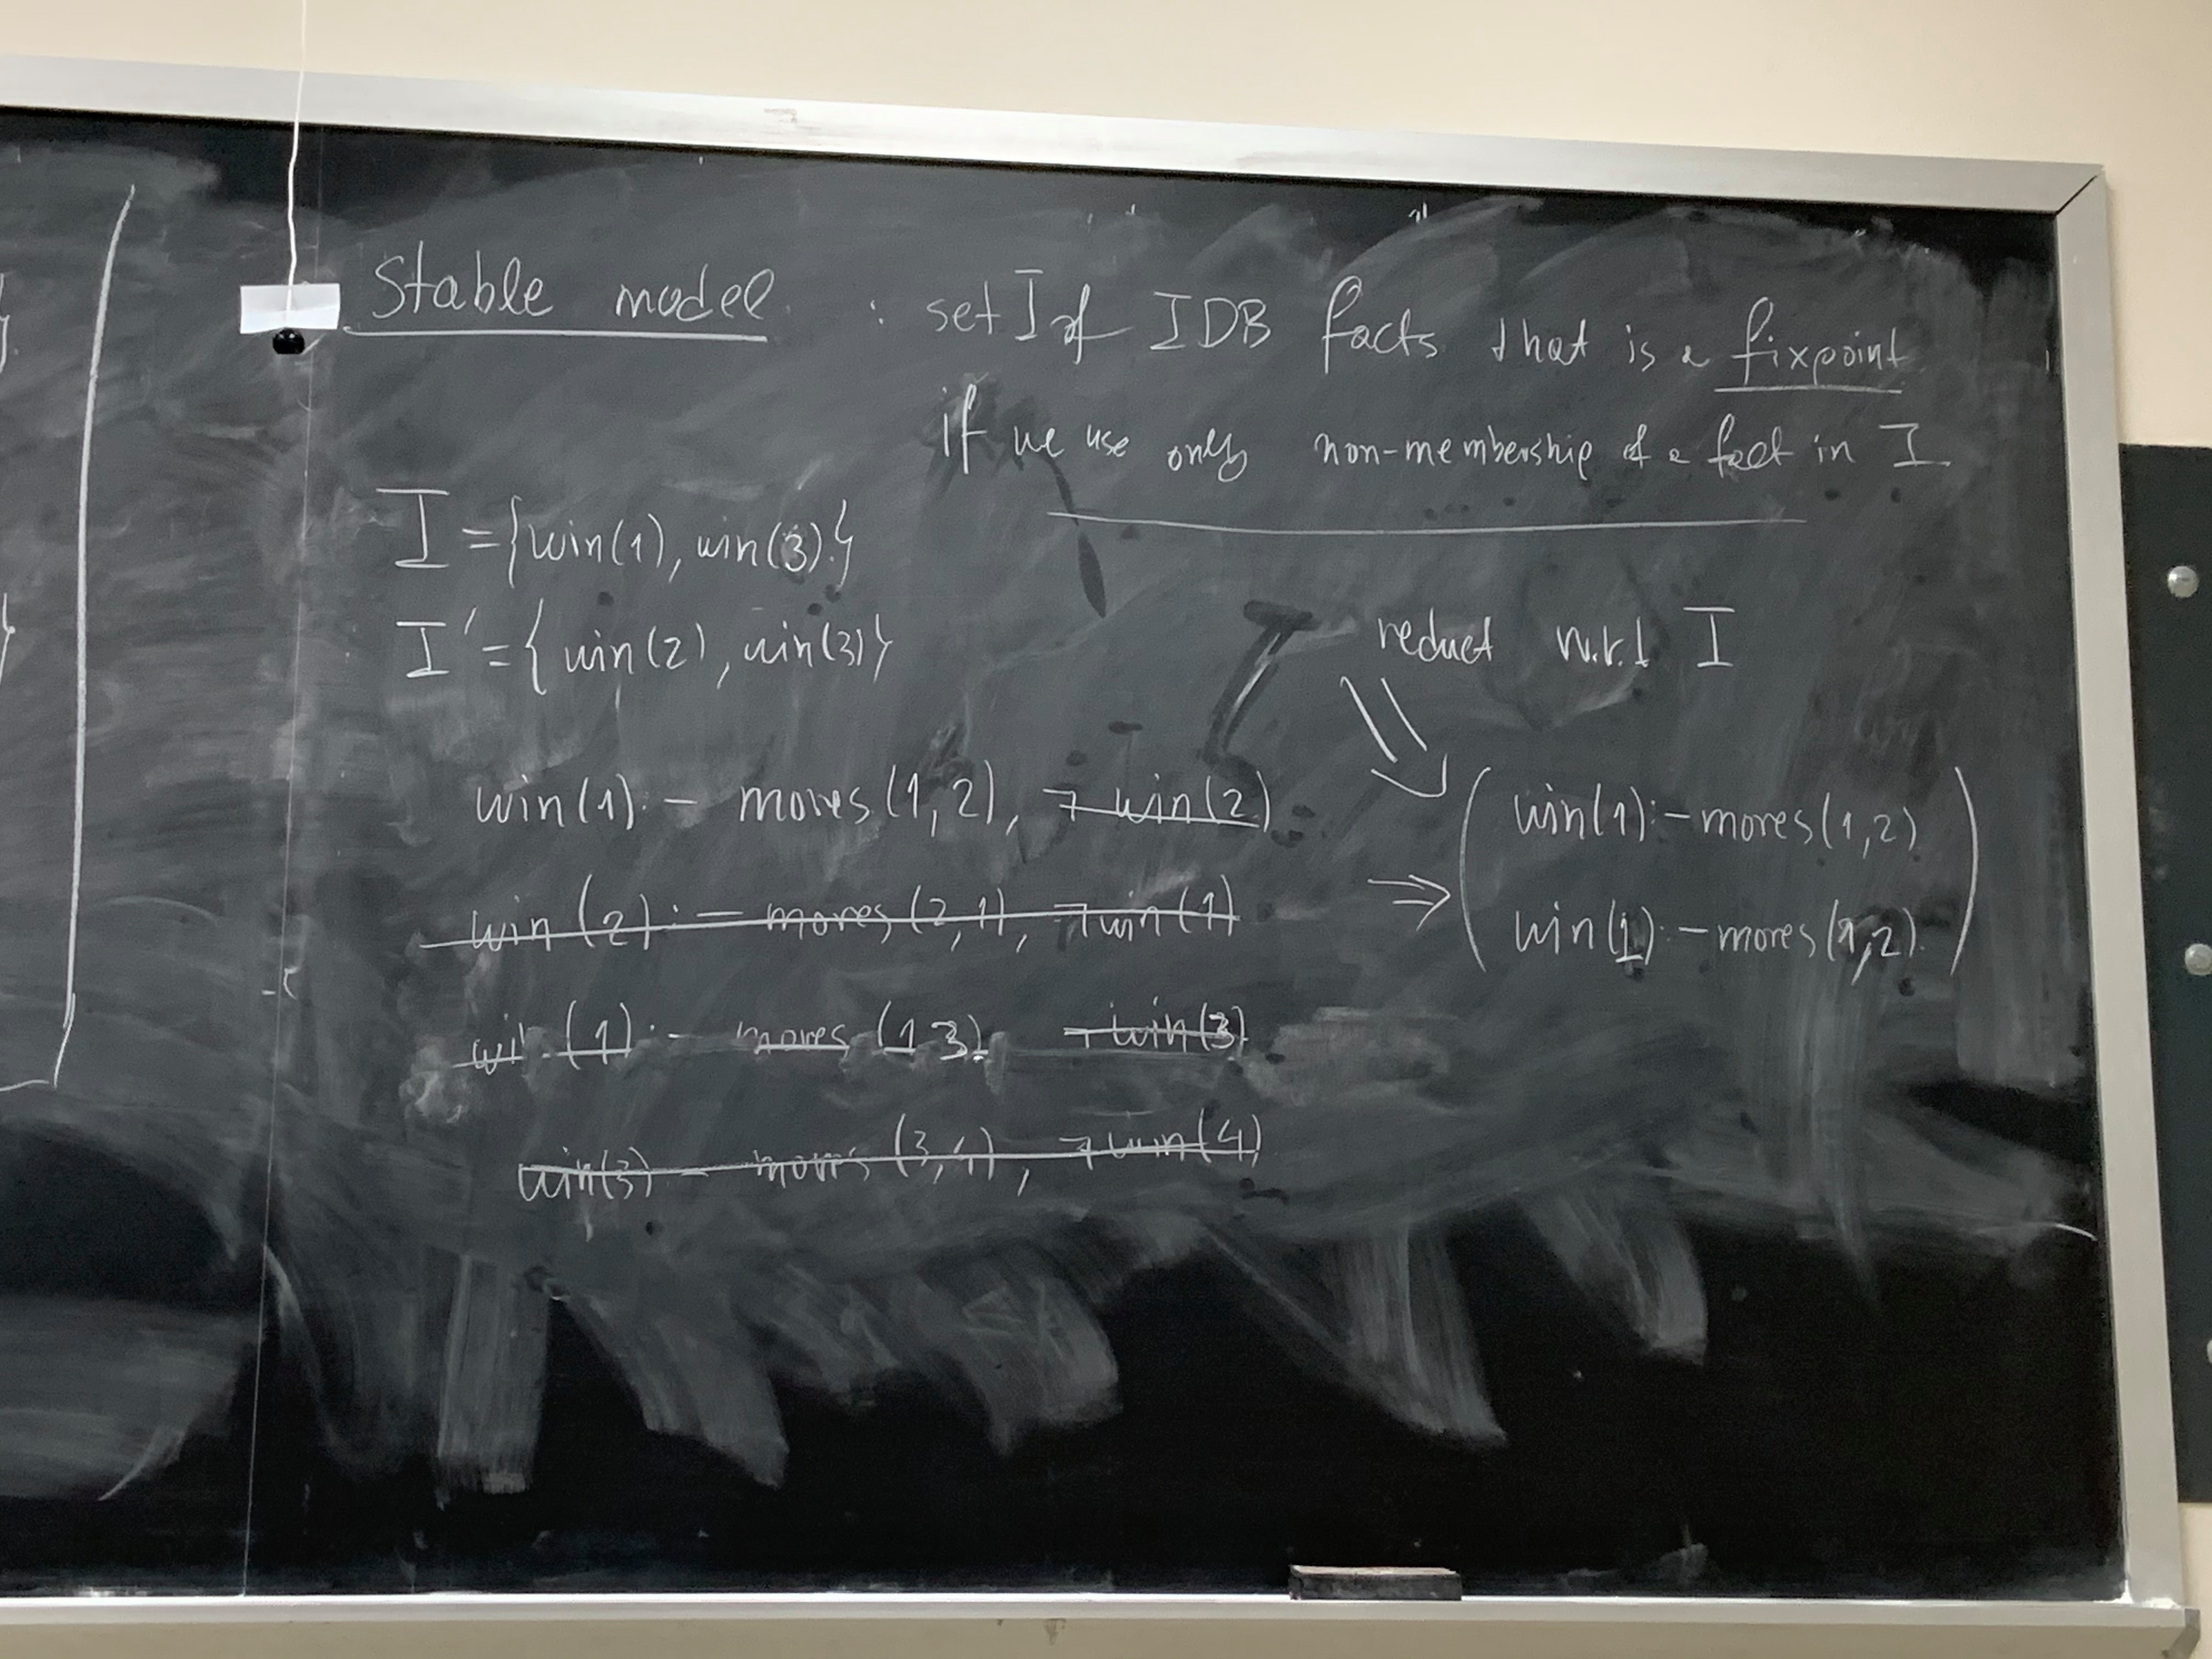 Stable model : set I of IDB facts that is a fixpoint
if we use only non-membership of a fact in I
I = {win(1), win(3)}
I' = {win(2), win(3)}
reduct w.r.t I
win(1) :- moves(1,2), ¬win(2)
win(2) :- moves(2,1), ¬win(1)
win(1) :- moves(1,3), ¬win(3)
win(3) :- moves(3,4), ¬win(4)
⇒
win(1) :- moves(1,2)
win(1) :- moves(1,2).